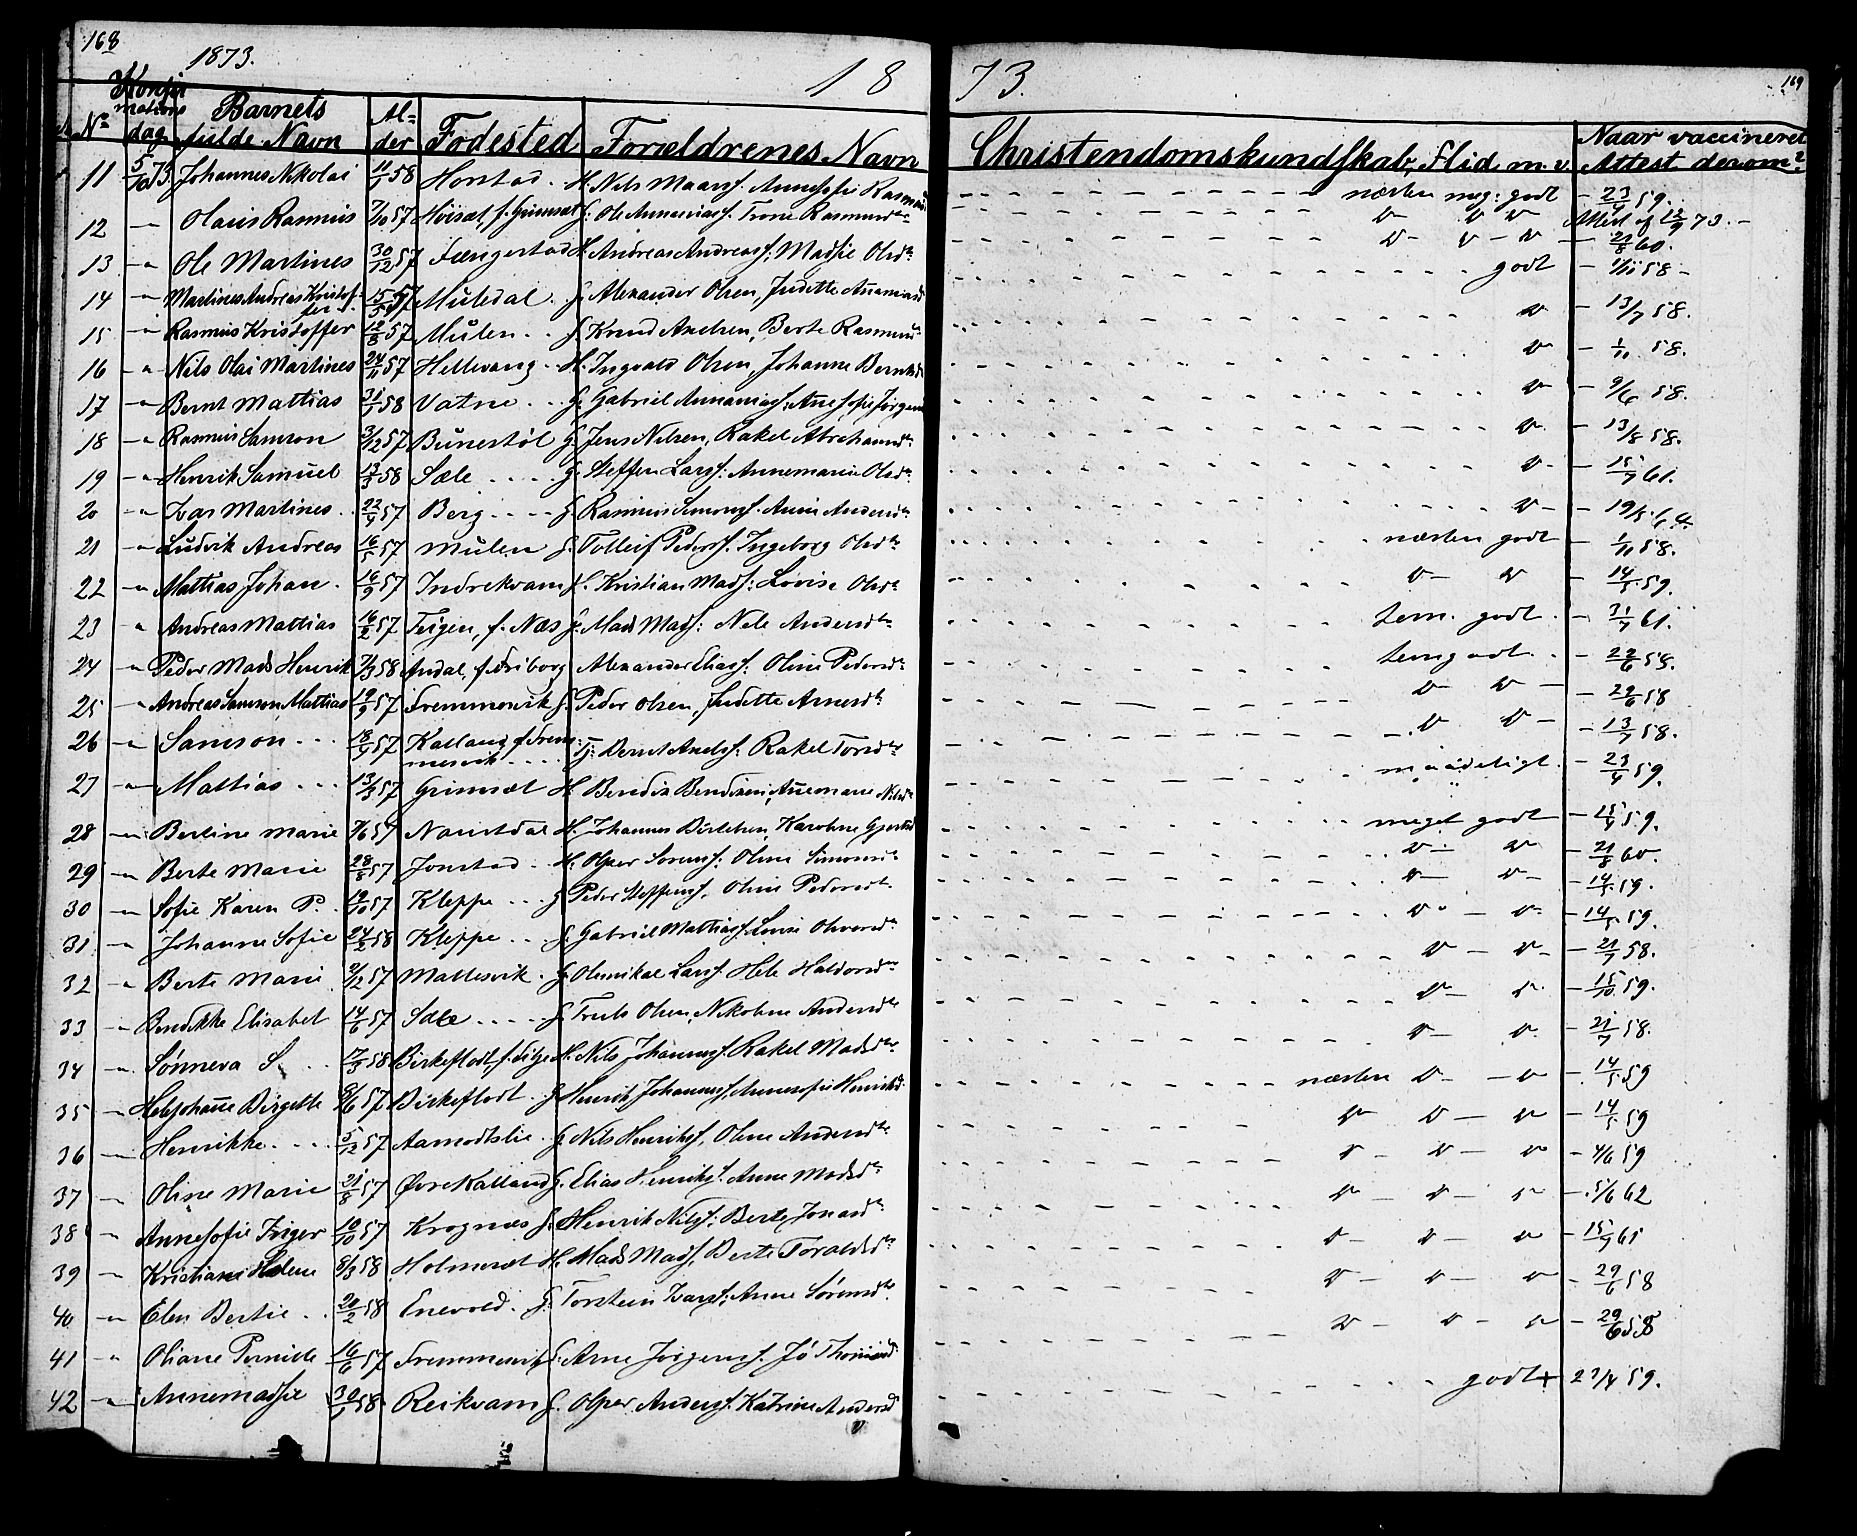 168
1873.
18 73.
169
No Konfirmations dag Barnets fulde Navn Alder Fødested Forældrenes Navn Christendomskundskab, Flid m. v. Naar vaccineret Attest derom
11 5/10 73, Johannes Nikolai 11/1 58 Horstad. H. Nils Maarsf. Annesofie næsten meg: godt - 23/4 59.
12 -"- Olaus Rasmus 7/10 57 f. Grimsæt G. Ole Ananiasf. Rasmusdtr v- v v Attest af 73.-
13 -"- Ole Martines 30/12 57 Fængestad H. Andreas Andreasf: Madsie Olsdtr v- v- v- - 21/8 60.
14 -"- Martines Andreas Kristoffer 15/5 57 Muledal. G. Alexander Olsen, Judette godt - 1/11 58-
15 -"- Rasmus Kristoffer 12/8 57 Mulen.. G. Knud Andsen, Berte v - 13/7 58.
16 -"- Nils Olai Martines 24/11 57 Hellevang.. H. Ingvald Olsen, Johanne v - 1/11 58.
17 -"- Bernt Mattias 31/1 58 Vatne... G. Gabriel Ananiasf. Anne Sofie v - 9/6 58.
18 -"- Rasmus Samson 3/12 57 Bunestøl G. Jens Nilsen, Rakel Abrahamsdtr v. - 13/8 58.
19 -"- Henrik Samuel 13/3 58 Sæle..... G. Steffen Larsf: Annemarie Olsdtr v- - 15/7 61.
20 -"- Lars Martines.. 22/9 57 Berg.... G. Rasmus Simonsf. Anne Andersdtr v- - 19/5 64.
21 -"- Ludvik Andreas 16/5 57 Mulen G. Tolleif Pedersf. Ingeborg Olsdtr næsten godt - 1/11 58.
22 -"- Mattias Johan. 16/9 57 Indrekvam H. Kristian Madsf: Lovise Olsdtr v- v - 14/5 59.
23 -"- Andreas Mattias 16/2 57 Teigen, f. Næs G. Mads Madsf: Nele Andersdtr tem. godt. - 31/7 61.
24 -"- Peder Mads Henrik 7/3 58 Andal, f. Friborg Alexander Eliasf: Oline Pedersdtr temgodt. - 22/6 58.
25 -"- Andreas Samson Mattias 19/9 57 Fremmervik G. Peder Olsen, Judette Arnesdtr v- v- - 22/6 58
26 -"- Samson... 18/9 57 Kalland f. Fremmervik.... G: Bernt Andsf: Rakel Torsdtr v v- - 13/7 58.
27 -"- Mattias... 13/3 57 Grimsæt H. Bendix Bendixen, Annemarie Nilsdtr maadeligt. - 23/4 59.
28 -"- Berline Marie 7/6 57 Naustdal H. Johannes Karoline meget godt - 15/9 59.
29 -"- Berte Marie 28/8 57 Jonstad.. H. Olper Sørensf: Oline Simonsdtr v- v- - 21/8 60.
30 -"- Sofie Karen P. 19/10 57 Kleppe... G. Peder Steffensf, Oline Pedersdtr v- v- - 14/5 59.
31 -"- Johanne Sofie 24/2 58 Kleppe.. G. Gabriel Mattiasf. Lovise v- - v- - 14/5 59.
32 -"- Berte Marie 9/12 57 Mallesvik. G. Olemikal Larsf. Hele Haldorsdtr v - v- - 21/7 58.
33 -"- Bendikke Elisabet 14/6 57 Sæle.... G. Truls Olsen, Nikoline Andersdtr v- v. - 15/10 59.
34 -"- Sønneva S... 17/3 58 Birkeflodt, f. H. Nils Johannesf. Rakel Madsdtr v- v. - 21/7 58.
35 -"- Helejohanne Birgette 8/6 57 Birkeflodt. G. Henrik Johannesf, Annesofie Henriksd. næsten v- - v - 14/5 59
36 -"- Henrikke.... 5/12 57 Aamodtslie. G. Nils Henriksf. Oline Andersdtr v v- v - 14/5 59
37 -"- Oline Marie 21/8 57 Øvre Kalland G. Elias Henriksf. Anne Madsdtr v - v- v - 4/6 59
38 -"- Annesofie Inger 10/10 57 Krognæs G. Henrik Nilsf: Berte Jonasdtr v- v- v - 5/6 62
39 -"- Kristiane Helene 8/3 58 Holmesæt H. Mads Madsf. Berte Toraldsdtr v- v- v - 15/9 61
40 -"- Elen Bertie.. 20/2 58 Enevold. G. Torstein Larsf: Anne Sørensdtr v- v- v - 29/6 58
41 -"- Oliane Pernille 16/6 57 Fremmervik G. Arne Jørgensf. v- v- v - 29/6 58
42 -"- Annemadsie 30/1 58. Reikvam G. Olper Andersf. Katrine Andersd godt + 23/4 59.